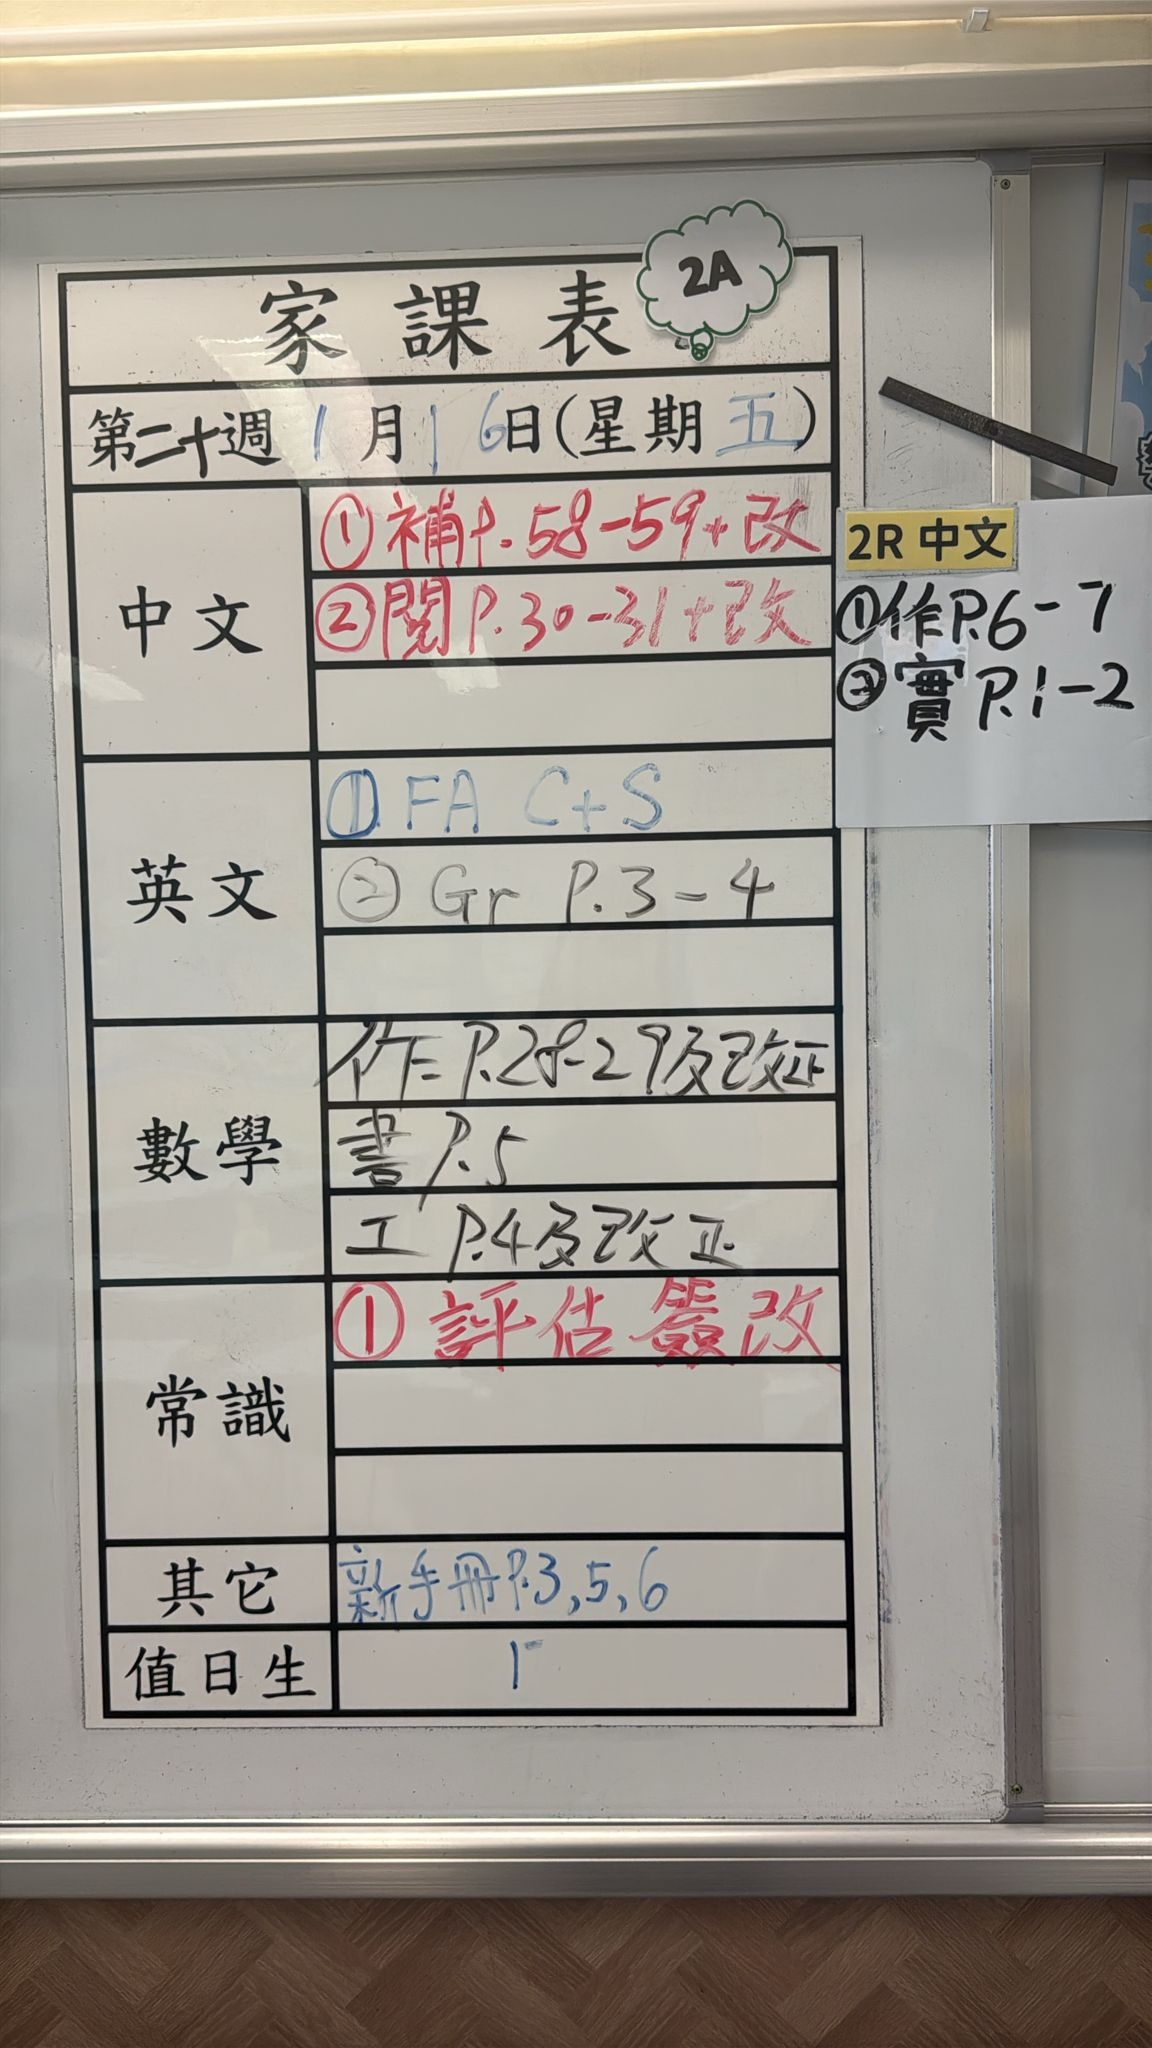 家課表
2A
第二十週 1月16日(星期五)
中文
①補P.58-59+改
②閱P.30-31+改
2R 中文
①作P.6-7
②實P.1-2
英文
① FA C+S
② Gr P.3-4
數學
作=P.28-29及改正
書P.5
工 P.4及改正
常識
① 評估簽改
其它
新手冊P.3,5,6
值日生